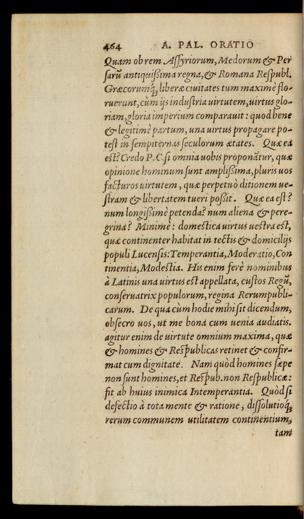 464 A. PAL. ORATIO
Quam ob rem Assyriorum, Medorum & Per
sarũ antiquißima regna, & Romana Respubl.
Græcorumq́, liberæ ciuitates tum maximè flo-
ruerunt, cum ijs industria uirtutem, uirtus glo-
riam, gloria imperium comparauit: quod bene
& legitimè partum, una uirtus propagare po-
test in sempiternas seculorum ætates. Quæ ea
est? Credo P.C. si omnia uobis proponãtur, quæ
opinione hominum sunt amplißima, pluris uos
facturos uirtutem, quæ perpetuò ditionem ue-
stram & libertatem tueri poßit. Quæ ea est?
num longißimè petenda? num aliena & pere-
grina? Minimè: domestica uirtus uestra est,
quæ continenter habitat in tectis & domicilijs
populi Lucensis: Temperantia, Moderatio, Con
tinentia, Modestia. His enim ferè nominibus
à Latinis una uirtus est appellata, custos Regũ,
conseruatrix populorum, regina Rerumpubli-
carum. De qua cùm hodie mihi sit dicendum,
obsecro uos, ut me bona cum uenia audiatis.
agitur enim de uirtute omnium maxima, quæ
& homines & Respublicas retinet & confir-
mat cum dignitate. Nam quòd homines sæpe
non sunt homines, et Respub. non Respublicæ:
fit ab huius inimica Intemperantia. Quòd si
defectio à tota mente & ratione, dissolutioq́,
rerum communem utilitatem continentium,
tam